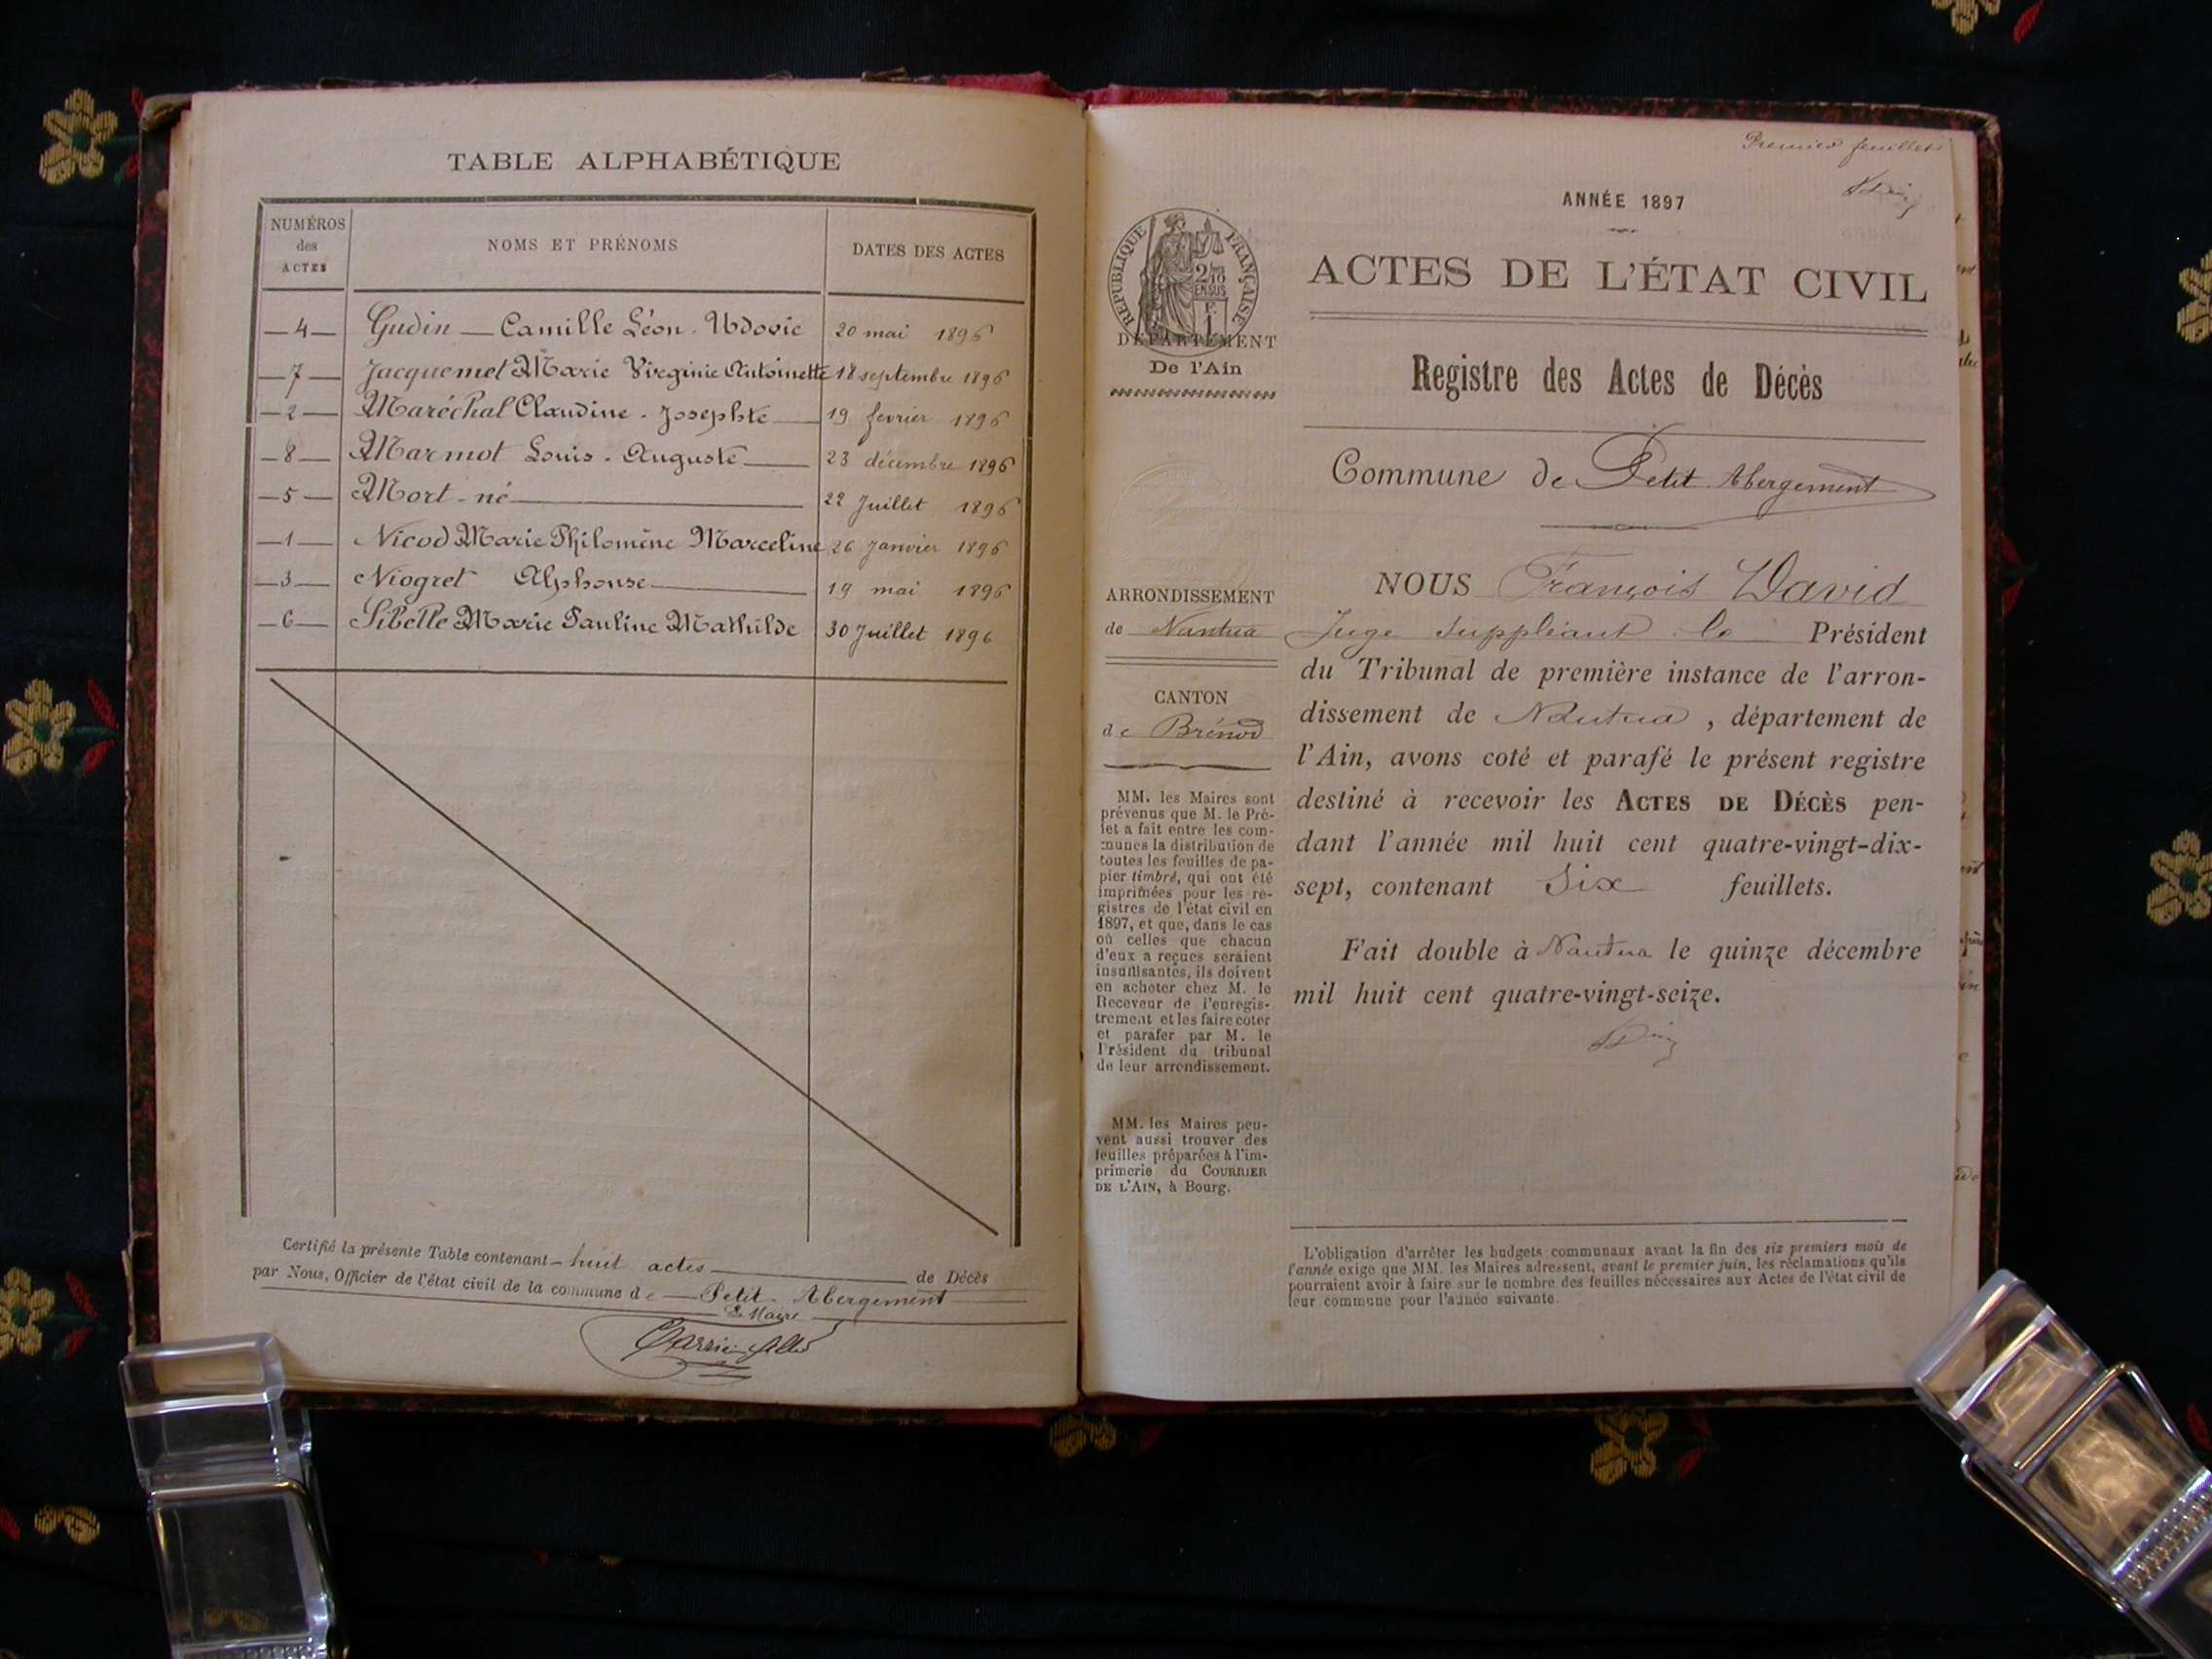 TABLE ALPHABÉTIQUE
NUMÉROS des ACTES
NOMS ET PRÉNOMS
DATES DES ACTES
4 Gudin Camille Léon 20 mai 1896
7 Jacquemet Marie Virginie Antoinette 18 septembre 1896
2 Maréchal Claudine - Josephte 19 fevrier 1896
8 Marmot Louis - Auguste 23 décembre 1896
5 Mort-né 22 Juillet 1896
1 Nicod Marie Philomène Marceline 26 Janvier 1896
3 Niogret Alphonse 19 mai 1896
6 Sibelle Marie Pauline Mathilde 30 Juillet 1896
Certifié la présente Table contenant huit actes de Décès
par Nous, Officier de l'état civil de la commune de Petit Abergement
Le Maire
Premier feuillet
ANNÉE 1897
ACTES DE L'ÉTAT CIVIL
Registre des Actes de Décès
Commune de Petit Abergement
RÉPUBLIQUE FRANÇAISE
2/10 EN SUS
F. 1
DÉPARTEMENT
De l'Ain
ARRONDISSEMENT
de Nantua
CANTON
de Brénod
MM. les Maires sont
prévenus que M. le Pré-
fet a fait entre les com-
munes la distribution de
toutes les feuilles de pa-
pier timbré, qui ont été
imprimées pour les re-
gistres de l'état civil en
1897, et que, dans le cas
où celles que chacun
d'eux a reçues seraient
insuffisantes, ils doivent
en acheter chez M. le
Receveur de l'enregis-
trement et les faire coter
et parafer par M. le
Président du tribunal
de leur arrondissement.
MM. les Maires peu-
vent aussi trouver des
feuilles préparées à l'im-
primerie du COURRIER
DE L'AIN, à Bourg.
NOUS François David
Juge Suppléant le Président
du Tribunal de première instance de l'arron-
dissement de Nantua, département de
l'Ain, avons coté et parafé le présent registre
destiné à recevoir les ACTES DE DÉCÈS pen-
dant l'année mil huit cent quatre-vingt-dix-
sept, contenant Six feuillets.
Fait double à Nantua le quinze décembre
mil huit cent quatre-vingt-seize.
L'obligation d'arrêter les budgets communaux avant la fin des six premiers mois de
l'année exige que MM. les Maires adressent, avant le premier juin, les réclamations qu'ils
pourraient avoir à faire sur le nombre des feuilles nécessaires aux Actes de l'état civil de
leur commune pour l'année suivante.